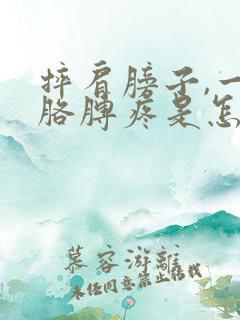 摔肩膀子,一
胳膊疼是怎
慕容游离
未经同意禁止搬载